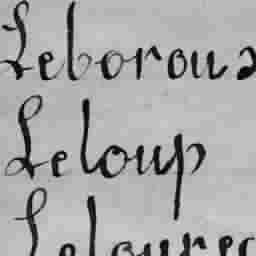 Leborous
Leloup